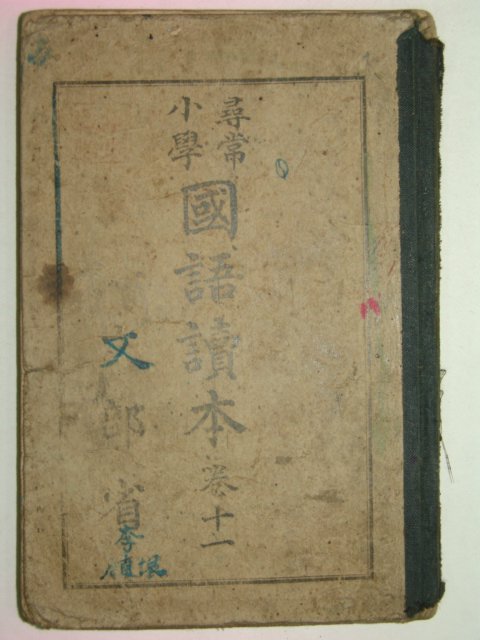 尋常
小學
國語讀本 卷十一
文部省
李